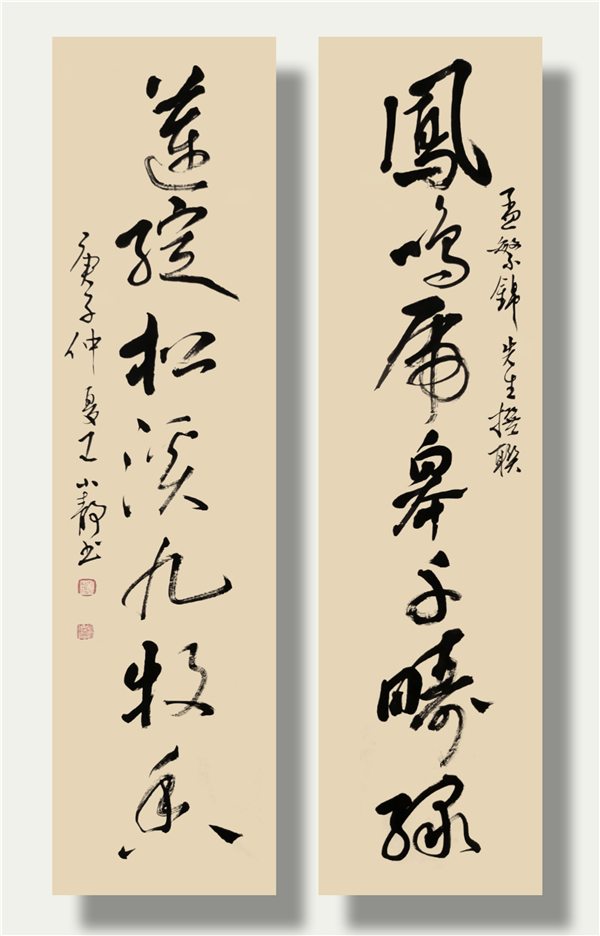 孟繁錦先生撰联
鳳鳴虎皋千疇綠
蓮綻松溪九牧香
庚子仲夏王小静书